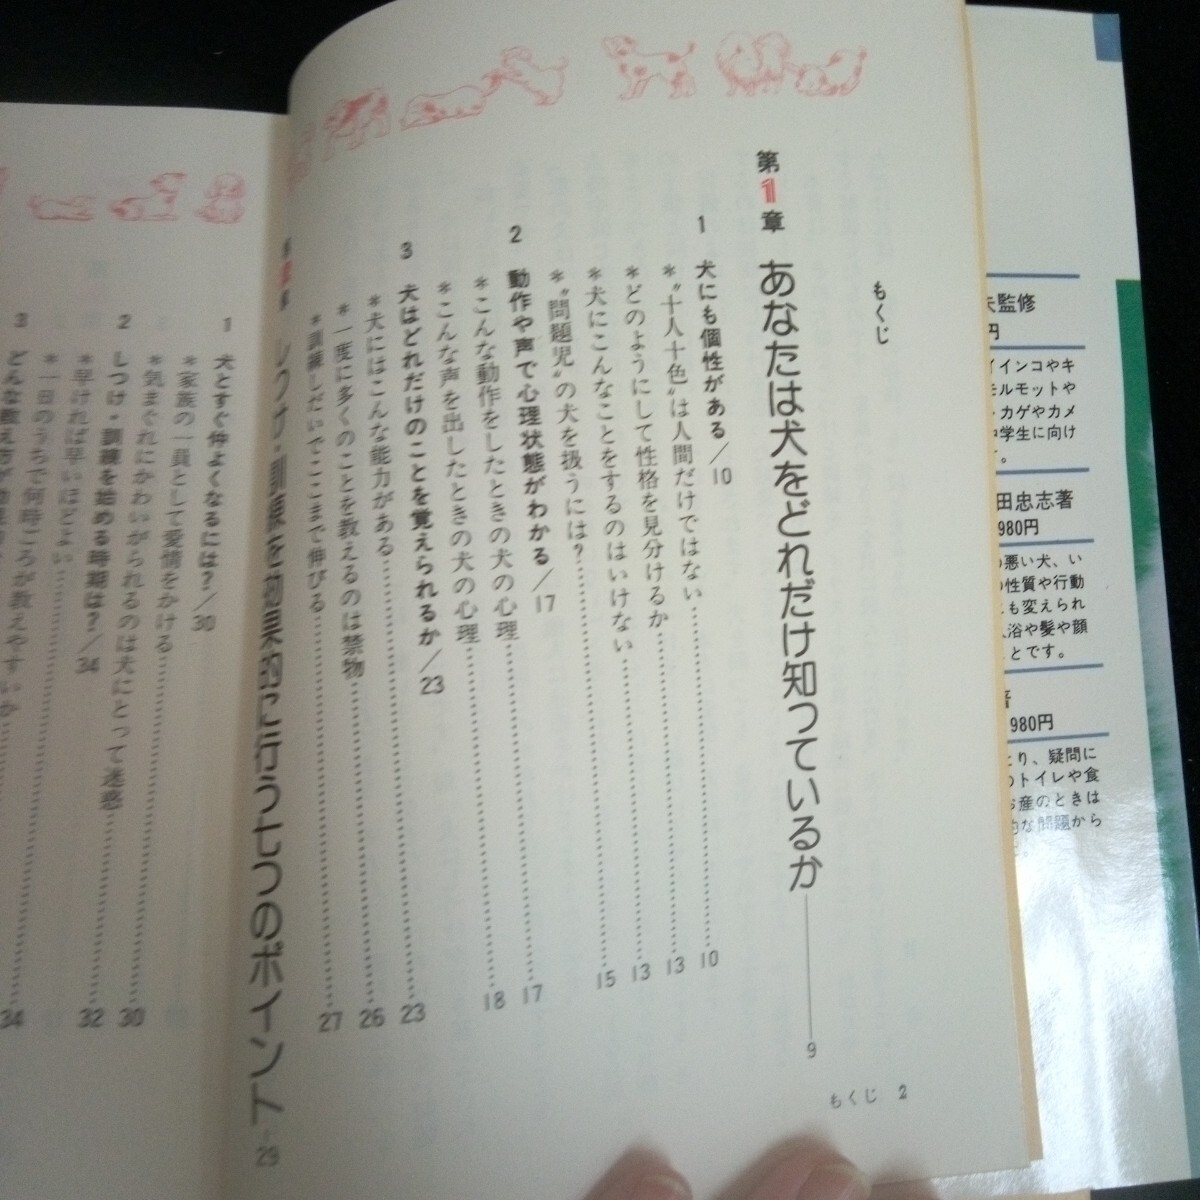 もくじ
第1章 あなたは犬をどれだけ知っているか――9
1 犬にも個性がある/10
*〝十人十色〟は人間だけではない……10
*どのようにして性格を見分けるか……13
*犬にこんなことをするのはいけない……13
*〝問題児〟の犬を扱うには?……15
2 動作や声で心理状態がわかる/17
*こんな動作をしたときの犬の心理……17
*こんな声を出したときの犬の心理……18
3 犬はどれだけのことを覚えられるか/23
*犬にはこんな能力がある……23
*一度に多くのことを教えるのは禁物……26
*訓練しだいでここまで伸びる……27
もくじ 2
しつけ・訓練を効果的に行う七つのポイント―29
1 犬とすぐ仲よくなるには?/30
*家族の一員として愛情をかける……30
*気まぐれにかわいがられるのは犬にとって迷惑……32
2 しつけ・訓練を始める時期は?/34
*早ければ早いほどよい……34
*一日のうちで何時ごろが教えやすいか
3 どんな教え方が
夫監修
円
イインコやキ
モルモットや
トカゲやカメ
中学生に向け
す。
田忠志著
980円
の悪い犬、い
の性質や行動
にも変えられ
入浴や髪や顔
ことです。
著
980円
とり、疑問に
のトイレや食
お産のときは
的な問題から